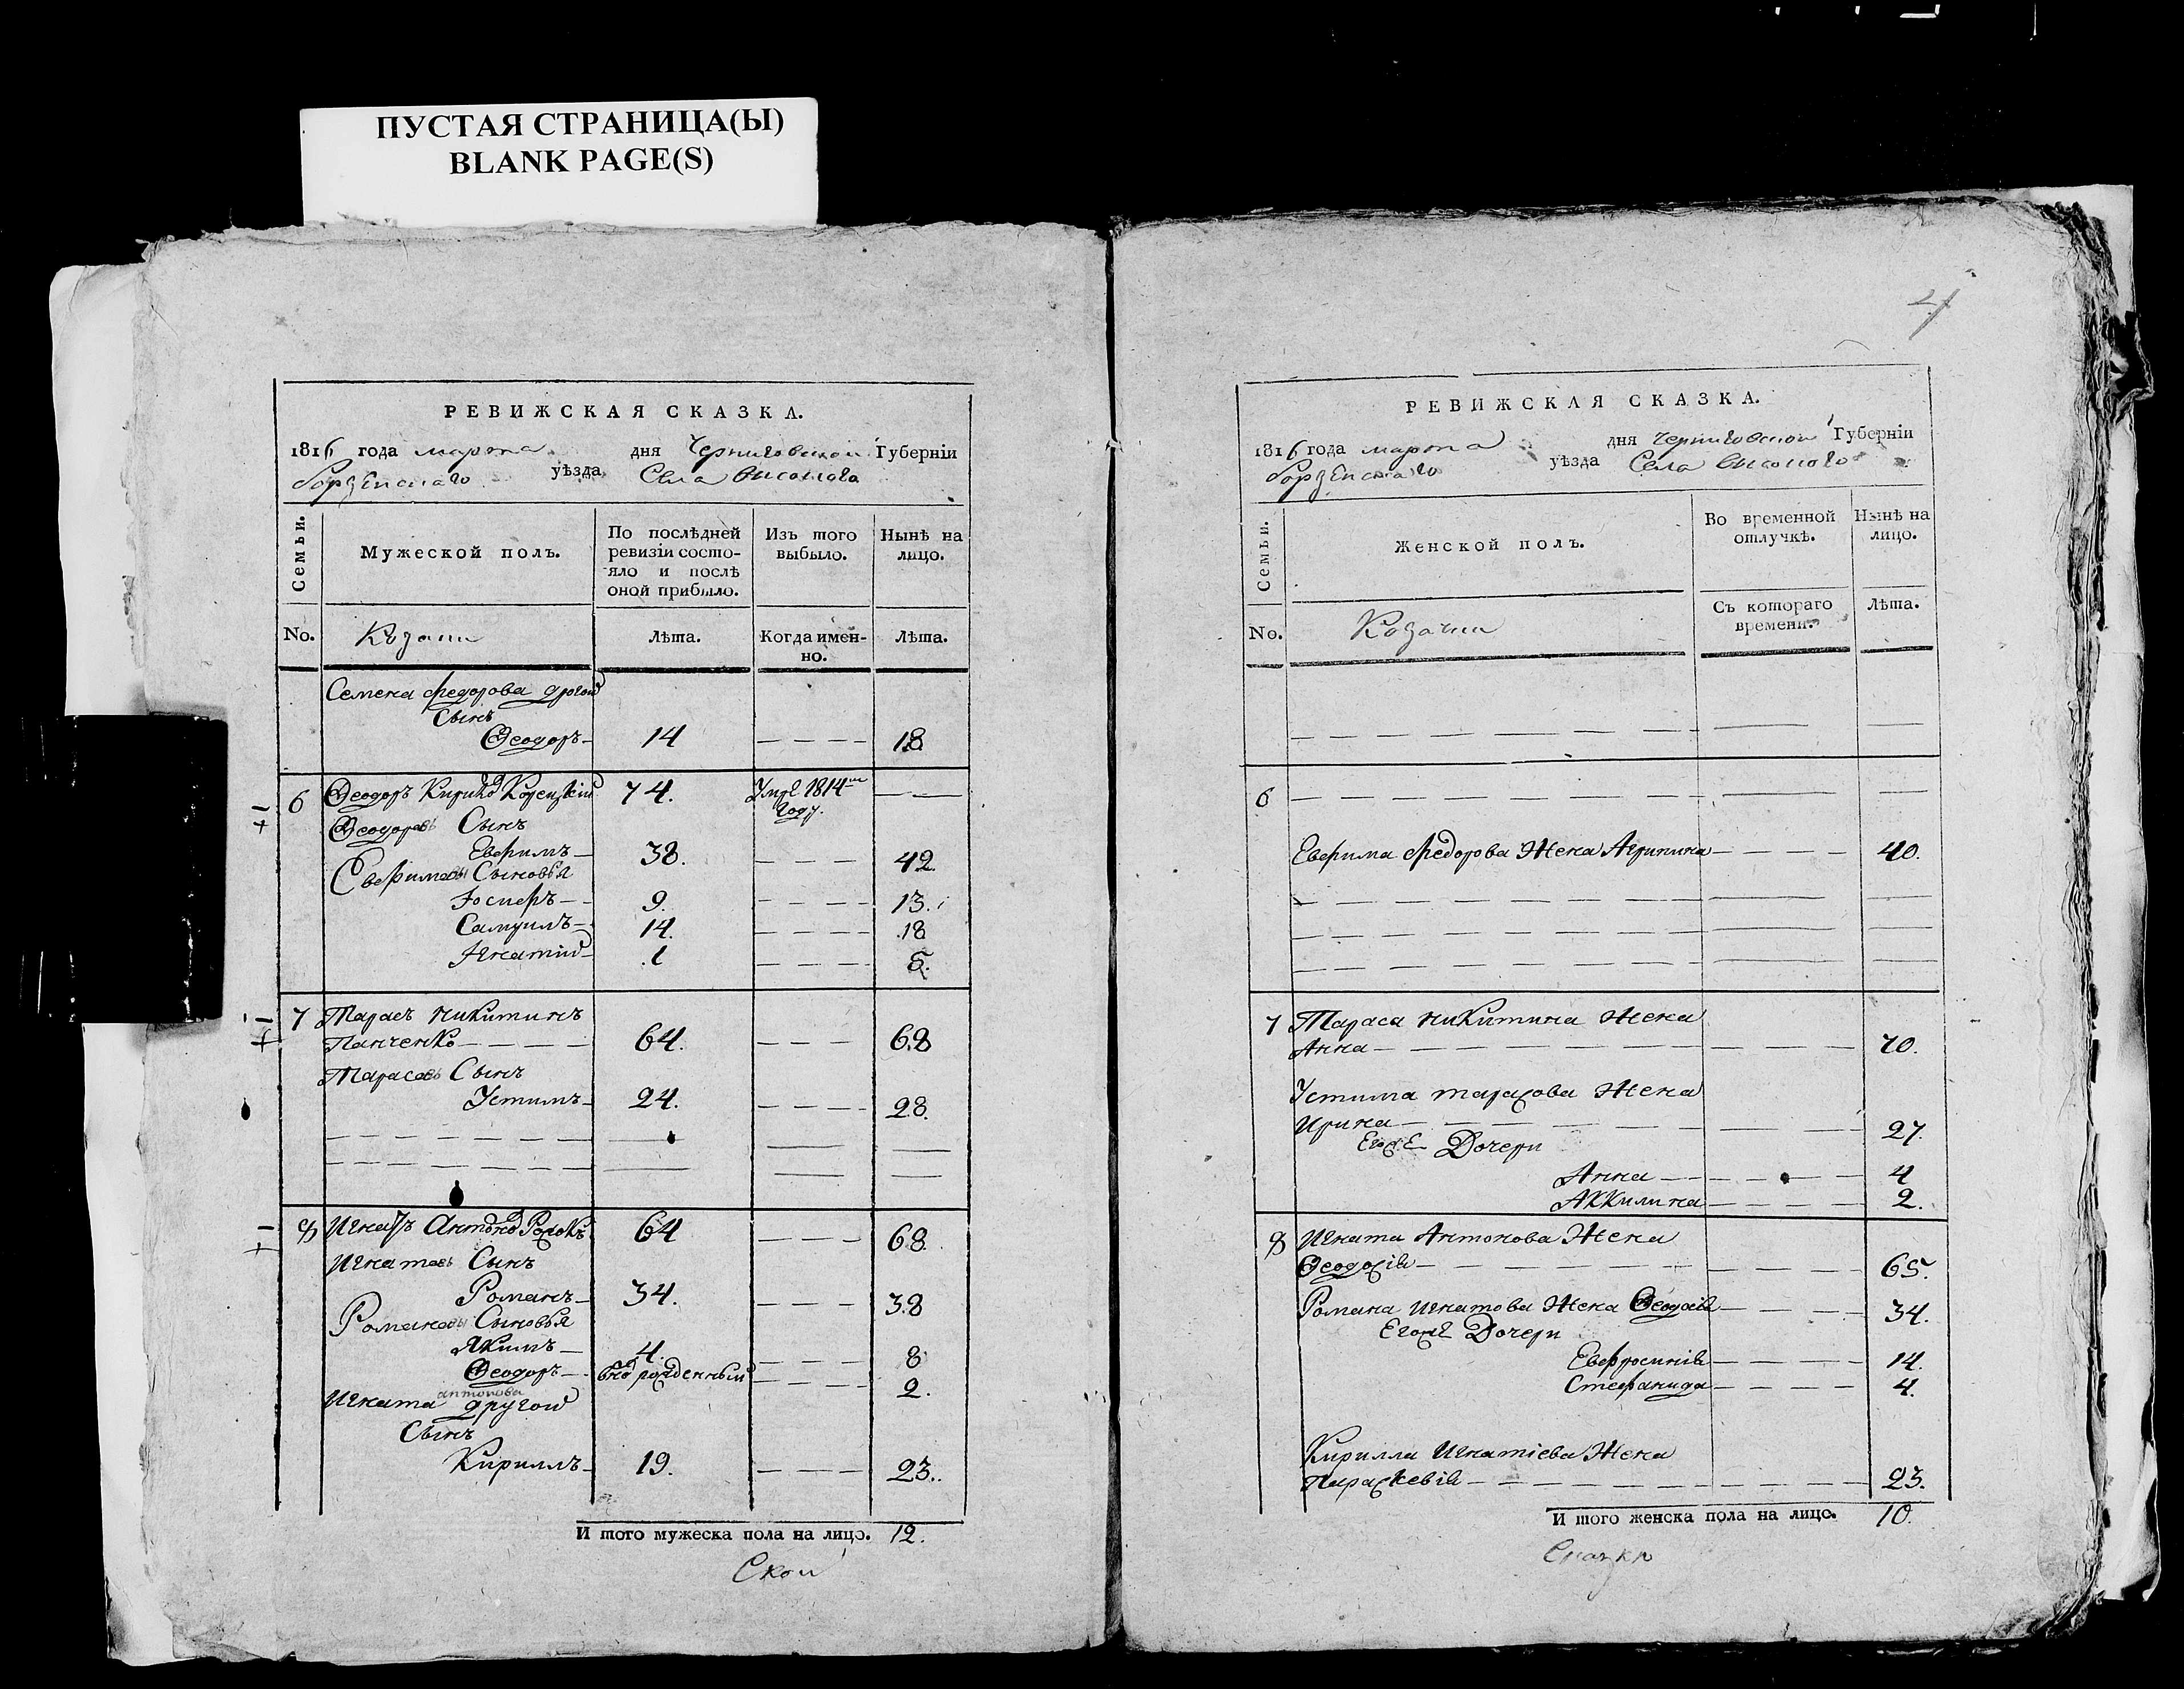 ПУСТАЯ СТРАНИЦА(Ы)
BLANK PAGE(S)
РЕВИЖСКАЯ СКАЗКА.
1816 года марта дня Черниговской Губерніи
уѣзда Села Высокого
Семьи.
Мужеской полъ.
По послѣдней ревизіи состо-
яло и послѣ
оной прибыло.
Изъ того
выбыло.
Нынѣ на
лицо.
No.
Козаки
Лѣта.
Когда имен-
но.
Лѣта.
Семена Федорова другой
Сынъ
Ѳеодоръ 14 18
6 Ѳеодоръ 74. Умре 1814 году.
Ѳеодоровъ Сынъ
Евфимъ 38. 42.
Евфимовы Сыновья
Іосифъ 9. 13.
Самуилъ 14. 18
Игнатій 1 5.
7 Тарасъ Никитинъ
Панченко 64. 68
Тарасовъ Сынъ
Устимъ 24. 28.
8 Игнатъ 64 68.
Игнатовъ Сынъ
Романъ 34. 38
Романовы Сыновья
Якимъ 4. 8
Ѳеодоръ 2.
антонова
Игната другой
Сынъ
Кириллъ 19. 23.
И того мужеска пола на лицо. 12.
4
РЕВИЖСКАЯ СКАЗКА.
1816 года марта дня Черниговской Губерніи
уѣзда Села Высокого
Семьи.
Женской полъ.
Во временной
отлучкѣ.
Нынѣ на
лицо.
No.
Козачки
Съ котораго
времени.
Лѣта.
6
Евфима Федорова Жена Агрипина 40.
7 Тараса Никитина Жена
Анна 70.
Устима тарасова Жена
Ирина 27.
Дочери
Анна 4
Аккилина 2.
8 Игната Антонова Жена
Ѳеодосія 65.
Романа Игнатова Жена Ѳеодосія 34.
Дочери
Евфросинія 14.
Стефанида 4.
Кирилла Игнатіева Жена
Параскевія 23.
И того женска пола на лицо. 10.